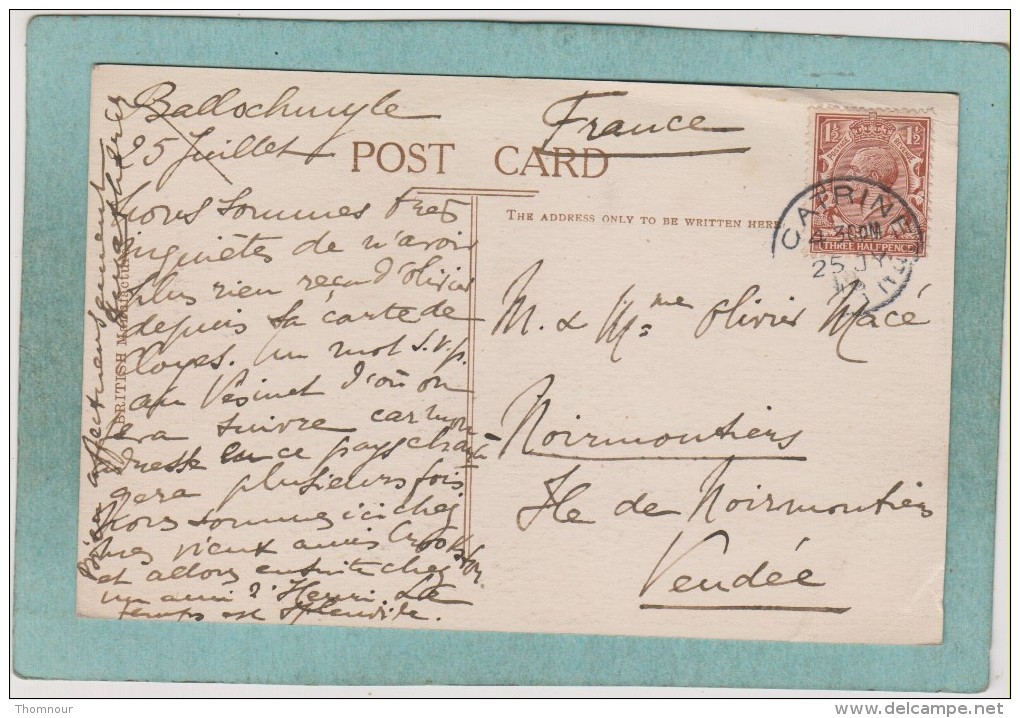 Ballochmyle
25 Juillet
POST CARD
France
1½ 1½
THREE HALFPENCE
CATRINE
4.30 PM
25 JY
THE ADDRESS ONLY TO BE WRITTEN HERE
Nous sommes très
inquiètes de n'avoir
plus rien reçu d'Olivier
depuis sa carte de
Cloyes. Un mot s.v.p.
au Vésinet d'où on
fera suivre car mon
adresse en ce pays chan-
gera plusieurs fois
Nous sommes ici chez
mes vieux amis
et allons ensuite chez
un ami d'Henri. Le
temps est splendide.
affectueusement
BRITISH Manufacture
M. & Mme Olivier Macé
Noirmoutiers
Ile de Noirmoutiers
Vendée
Thomnour
www.delcampe.net